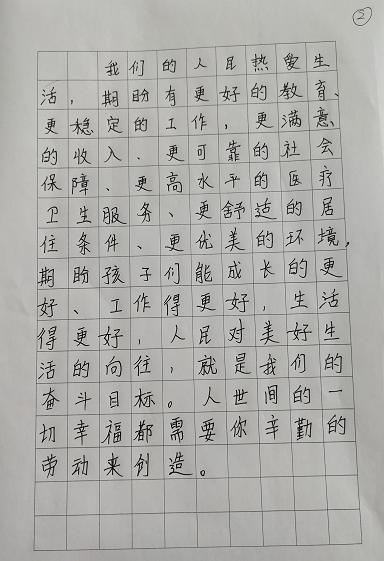 ②
我们的人民热爱生
活，期盼有更好的教育、
更稳定的工作，更满意
的收入、更可靠的社会
保障、更高水平的医疗
卫生服务、更舒适的居
住条件、更优美的环境，
期盼孩子们能成长的更
好、工作得更好，生活
得更好，人民对美好生
活的向往，就是我们的
奋斗目标。人世间的一
切幸福都需要你辛勤的
劳动来创造。